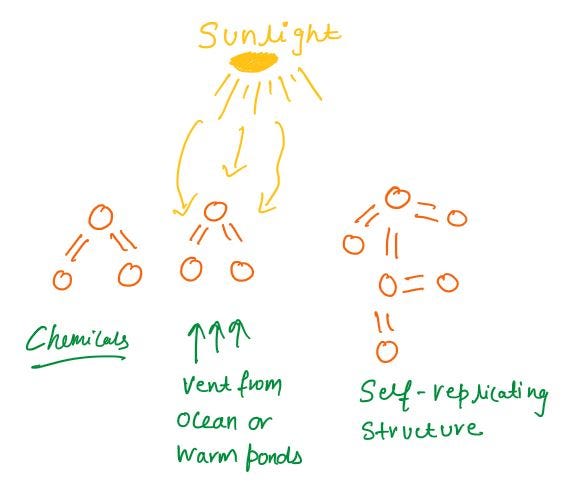 Sunlight
Chemicals
Vent from
Ocean or
Warm ponds
Self-replicating
Structure